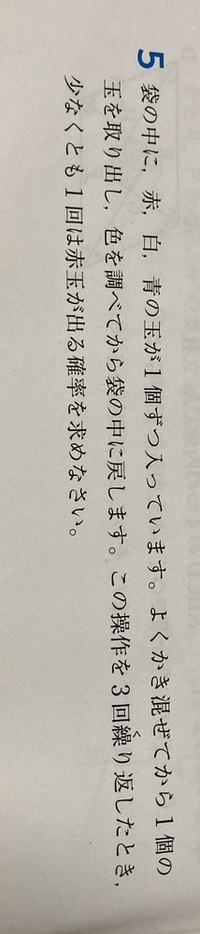 5 袋の中に，赤，白，青の玉が1個ずつ入っています。よくかき混ぜてから1個の
玉を取り出し，色を調べてから袋の中に戻します。この操作を3回繰り返したとき，
少なくとも1回は赤玉が出る確率を求めなさい。